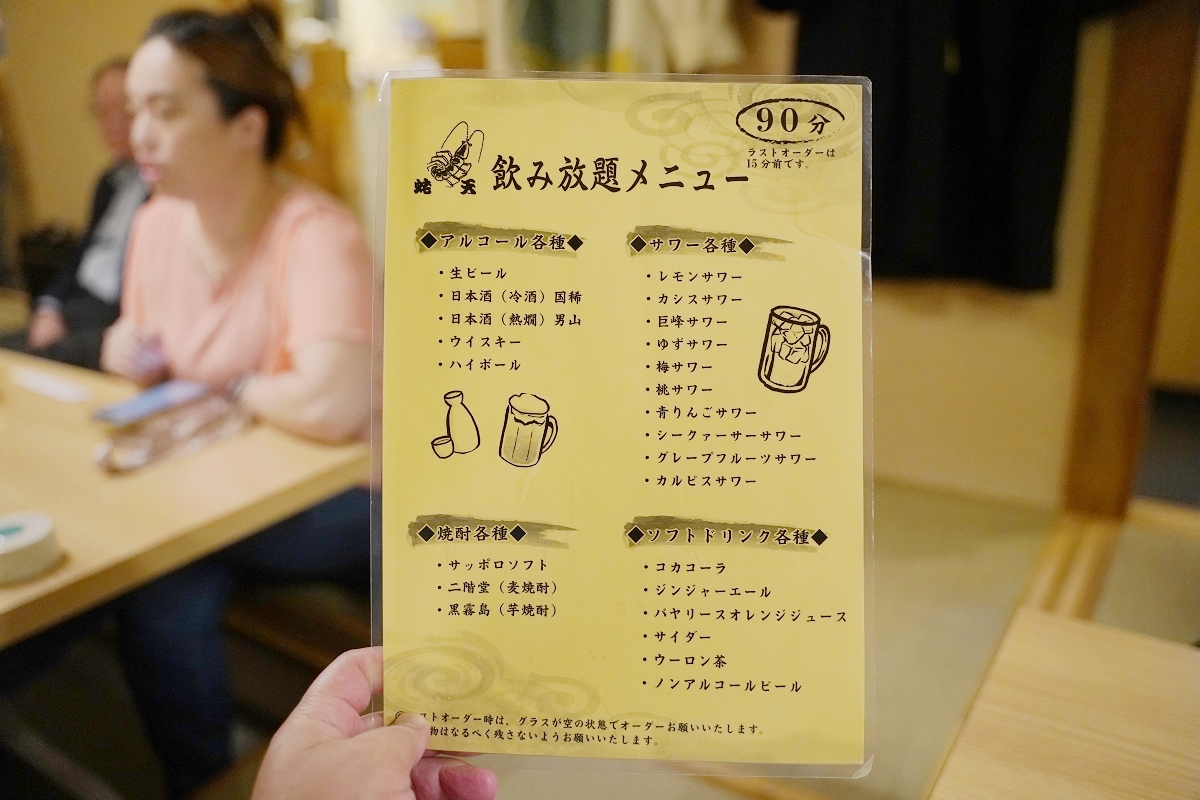 90分
ラストオーダーは
15分前です。
蛯天
飲み放題メニュー
◆アルコール各種◆
・生ビール
・日本酒（冷酒）国稀
・日本酒（熱燗）男山
・ウイスキー
・ハイボール
◆サワー各種◆
・レモンサワー
・カシスサワー
・巨峰サワー
・ゆずサワー
・梅サワー
・桃サワー
・青りんごサワー
・シークァーサーサワー
・グレープフルーツサワー
・カルピスサワー
◆焼酎各種◆
・サッポロソフト
・二階堂（麦焼酎）
・黒霧島（芋焼酎）
◆ソフトドリンク各種◆
・コカコーラ
・ジンジャーエール
・バヤリースオレンジジュース
・サイダー
・ウーロン茶
・ノンアルコールビール
ストオーダー時は、グラスが空の状態でオーダーお願いいたします。
物はなるべく残さないようお願いいたします。